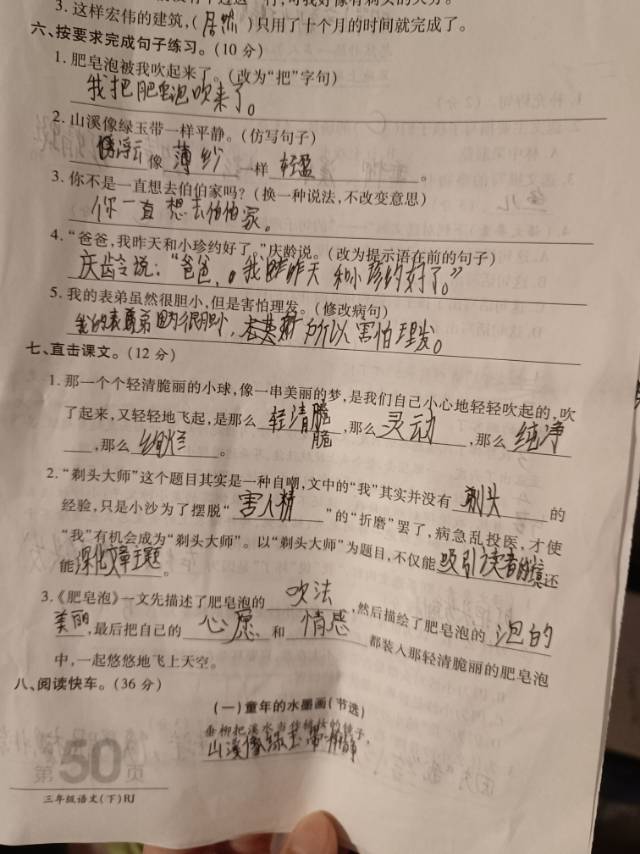 3. 这样宏伟的建筑,(居然)只用了十个月的时间就完成了。
六、按要求完成句子练习。(10 分)
1. 肥皂泡被我吹起来了。(改为“把”字句)
我把肥皂泡吹来了。
2. 山溪像绿玉带一样平静。(仿写句子)
浮云 像 薄纱 一样 轻盈 。
3. 你不是一直想去伯伯家吗?(换一种说法,不改变意思)
你一直想去伯伯家。
4. “爸爸,我昨天和小珍约好了。”庆龄说。(改为提示语在前的句子)
庆龄说:“爸爸,我昨天和小珍约好了。”
5. 我的表弟虽然很胆小,但是害怕理发。(修改病句)
我的表弟因为很胆小,所以害怕理发。
七、直击课文。(12 分)
1. 那一个个轻清脆丽的小球,像一串美丽的梦,是我们自己小心地轻轻吹起的,吹
了起来,又轻轻地飞起,是那么 轻清脆 ,那么 灵动 ,那么 纯净
脆
,那么 绚烂 。
2. “剃头大师”这个题目其实是一种自嘲,文中的“我”其实并没有 剃头 的
经验,只是小沙为了摆脱“ 害人精 ”的“折磨”罢了,病急乱投医,才使
“我”有机会成为“剃头大师”。以“剃头大师”为题目,不仅能 吸引读者 还
能 深化文章主题 。
3.《肥皂泡》一文先描述了肥皂泡的 吹法 ,然后描绘了肥皂泡的 泡的
美丽 ,最后把自己的 心愿 和 情感 都装入那轻清脆丽的肥皂泡
中,一起悠悠地飞上天空。
八、阅读快车。(36 分)
(一)童年的水墨画(节选)
垂柳把溪水当作梳妆的镜子,
山溪像绿玉带一样平静
第50页
三年级语文(下)RJ